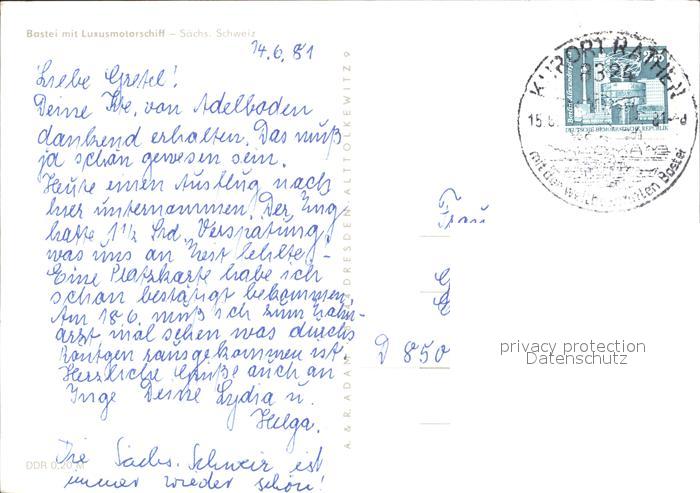 Bastei mit Luxusmotorschiff – Sächs. Schweiz
14.6.81
Liebe Gretel!
Deine Kte. von Adelboden
dankend erhalten. Das muß
ja schön gewesen sein.
Heute einen Ausflug nach
hier unternommen. Der Zug
hatte 1½ Std. Verspätung,
was uns an Zeit fehlte.-
Eine Platzkarte habe ich
schon bestätigt bekommen.
Am 18.6. muß ich zum Zahn-
arzt mal sehen was durchs
Röntgen rausgekommen ist.
Herzliche Grüße auch an
Inge Deine Lydia u.
Helga.
Die Sächs. Schweiz ist
immer wieder schön!
DDR 0,20 M
A. & R. ADAM DRESDEN ALTTOLKEWITZ 9
KURORT RATHEN
8324
15.6.81
mit der Bastei
Berlin, Alexanderplatz
DEUTSCHE DEMOKRATISCHE REPUBLIK
Frau
G
D 850
privacy protection
Datenschutz